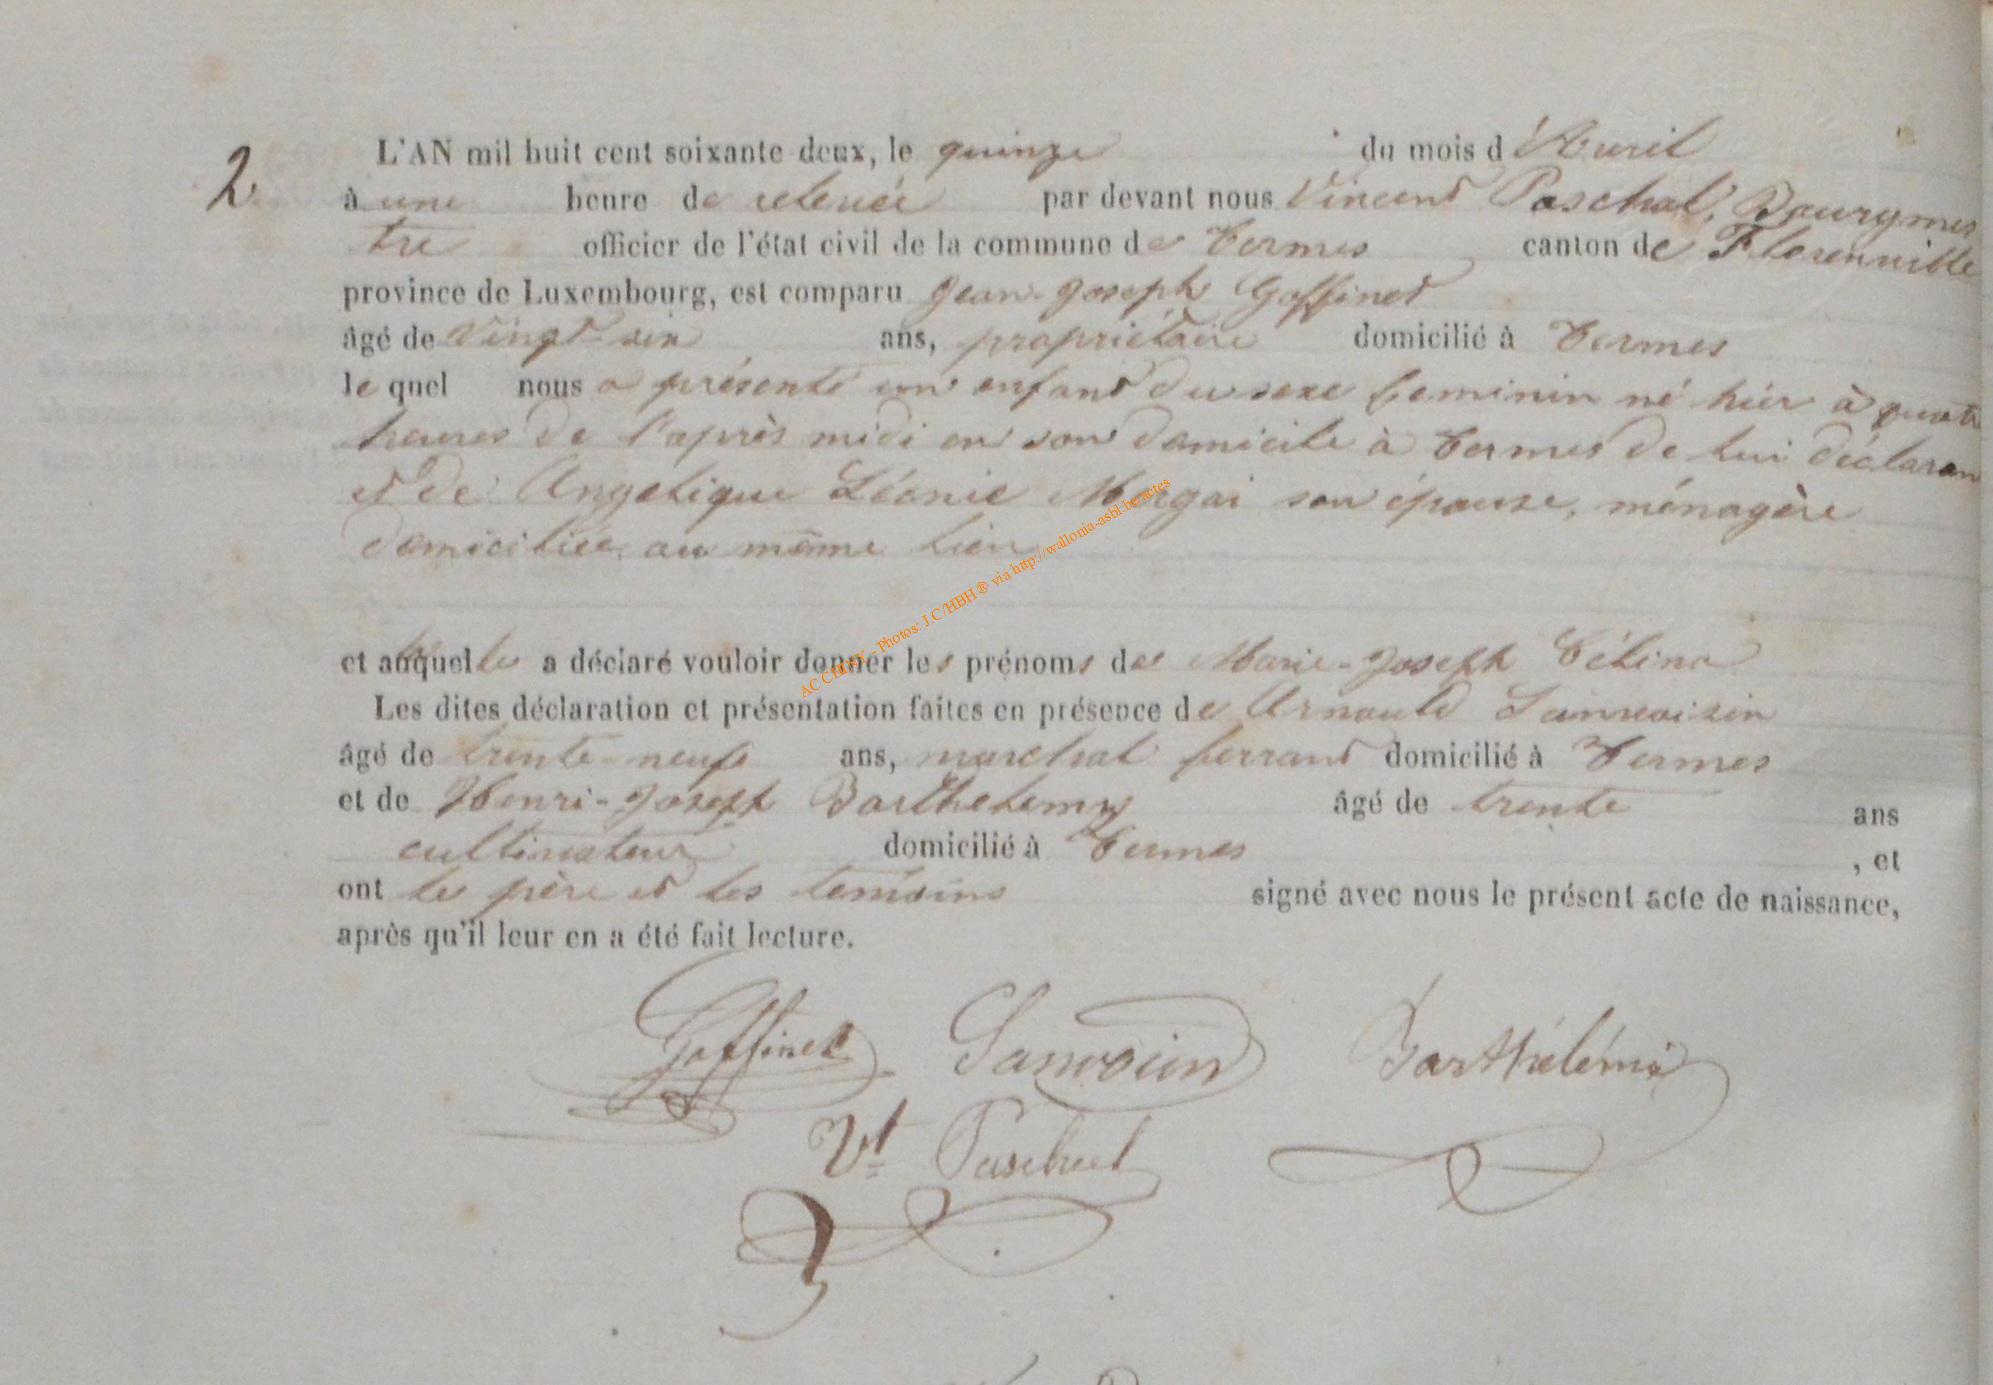 2.
L'AN mil huit cent soixante deux, le quinze du mois d'Avril
à une heure de relevée par devant nous Vincent Paschal, Bourgmes
tre officier de l'état civil de la commune de Termes canton de Florenville
province de Luxembourg, est comparu Jean-Joseph Goffinet
âgé de Vingt-six ans, propriétaire domicilié à Termes
le quel nous a présenté un enfant du sexe feminin né hier à quatre
heures de l'après midi en son domicile à Termes de lui déclarant
et de Angelique Léonie Morgai son épouse, ménagère
domiciliée au même lieu
et auquel a déclaré vouloir donner les prénoms de Marie-Joseph Célina
Les dites déclaration et présentation faites en présence de Arnould
âgé de trente-neuf ans, marechal ferrant domicilié à Termes
et de Henri-Joseph Barthelemy âgé de trente ans
cultivateur domicilié à Termes , et
ont le père et les temoins signé avec nous le présent acte de naissance,
après qu'il leur en a été fait lecture.
Goffinet Sanvoisin Barthélémi
Vt Paschal
AC CHINY - Photos: J.C/HBH® via http://wallonia-asbl.be/actes